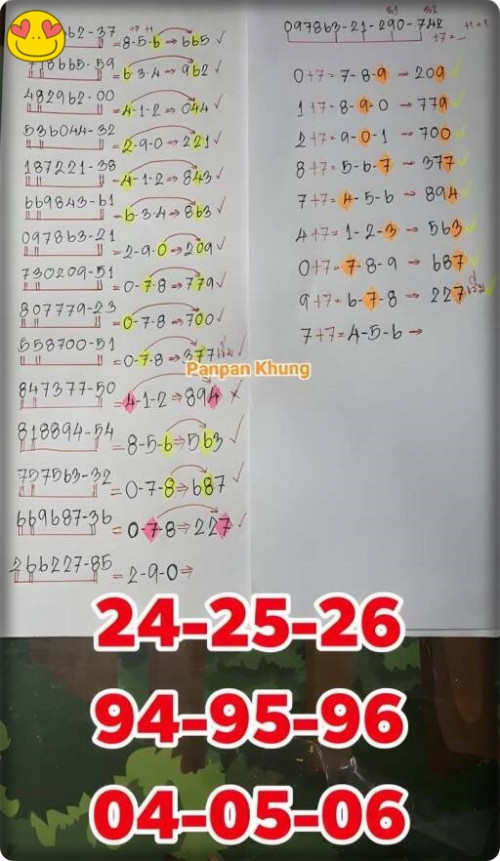 62-37 = 8-5-6 → 665 ✓
718665-59 = 6-3-4 → 962 ✓
482962-00 = 4-1-2 → 044 ✓
536044-32 = 2-9-0 → 221 ✓
187221-38 = 4-1-2 → 843 ✓
669843-61 = 6-3-4 → 863 ✓
097863-21 = 2-9-0 → 209 ✓
730209-51 = 0-7-8 → 779 ✓
807779-23 = 0-7-8 → 700 ✓
558700-51 = 0-7-8 → 377 ✓
847377-50 = 4-1-2 → 894 ×
818894-54 = 8-5-6 → 563 ✓
757563-32 = 0-7-8 → 687 ✓
669687-36 = 0-7-8 → 227 ✓
266227-85 = 2-9-0 →
097863-21-290-742
+7 = _
0+7 = 7-8-9 → 209
1+7 = 8-9-0 → 779
2+7 = 9-0-1 → 700
8+7 = 5-6-7 → 377
7+7 = 4-5-6 → 894
4+7 = 1-2-3 → 563
0+7 = 7-8-9 → 687
9+7 = 6-7-8 → 227
7+7 = 4-5-6 →
Panpan Khung
24-25-26
94-95-96
04-05-06